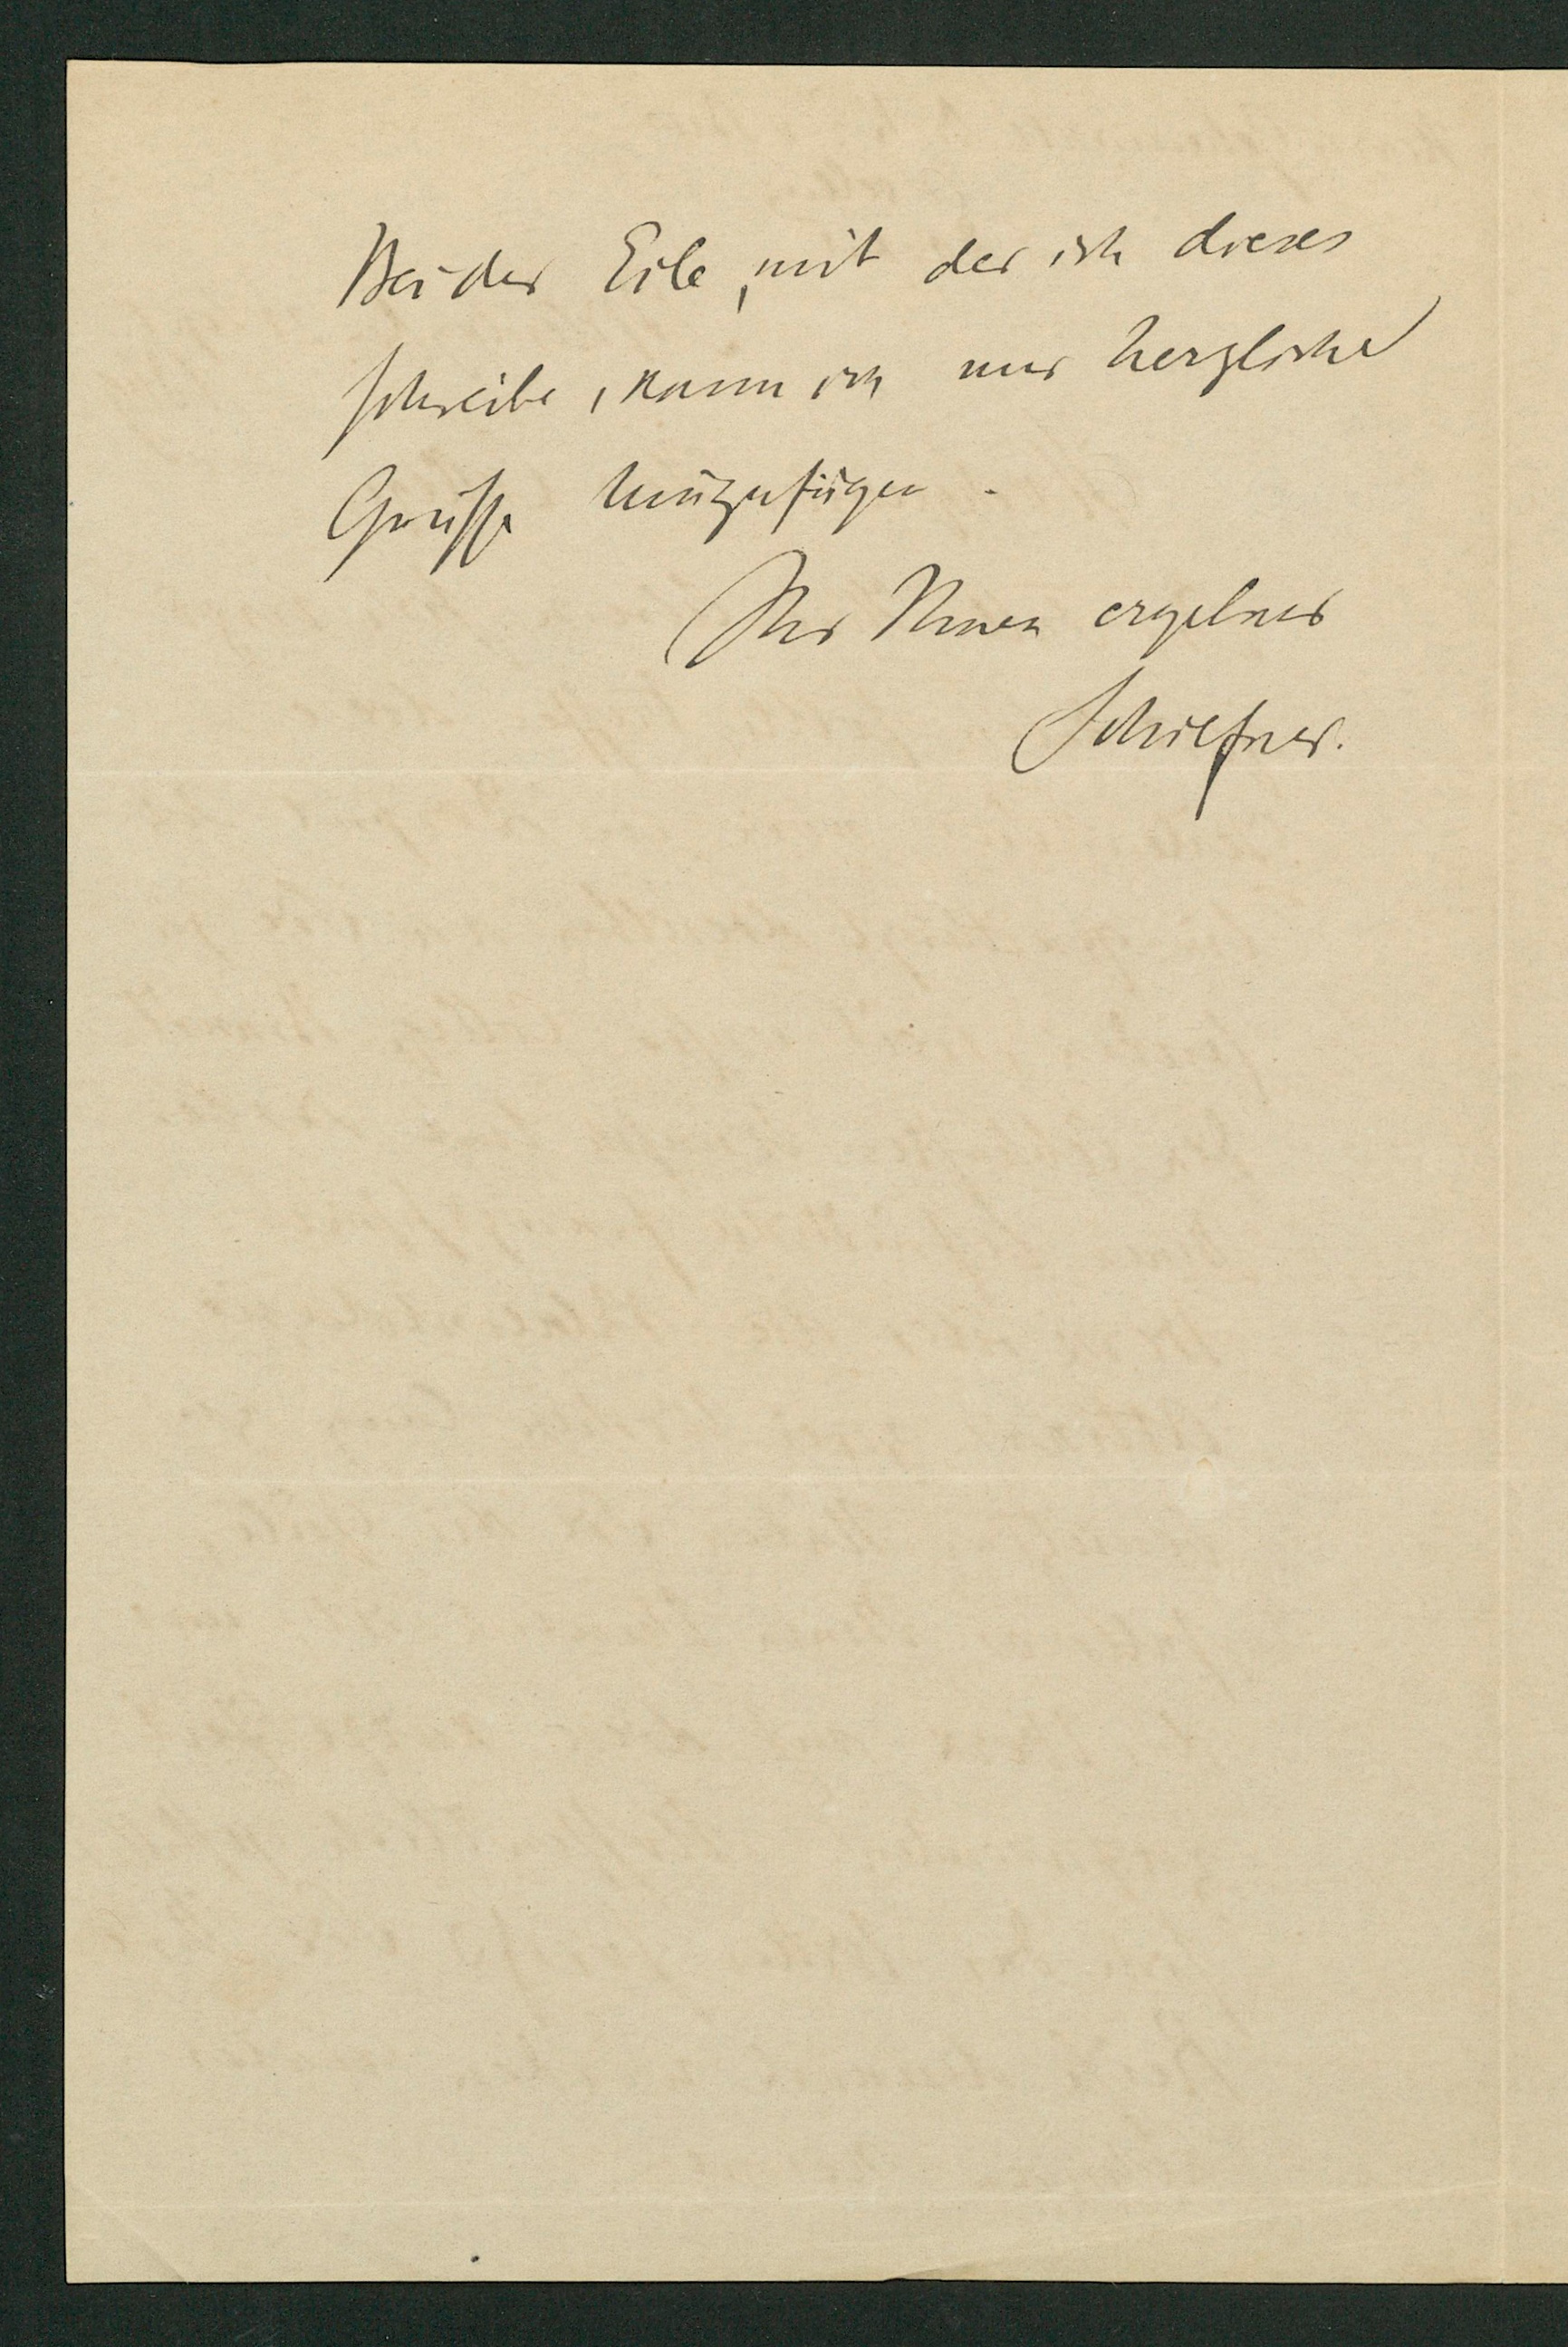 Bei der Eile, mit der ich dieses
schreibe, kann ich nur herzliche
Grüsse hinzufügen.
Ihr Ihnen ergebner
Schiefner.